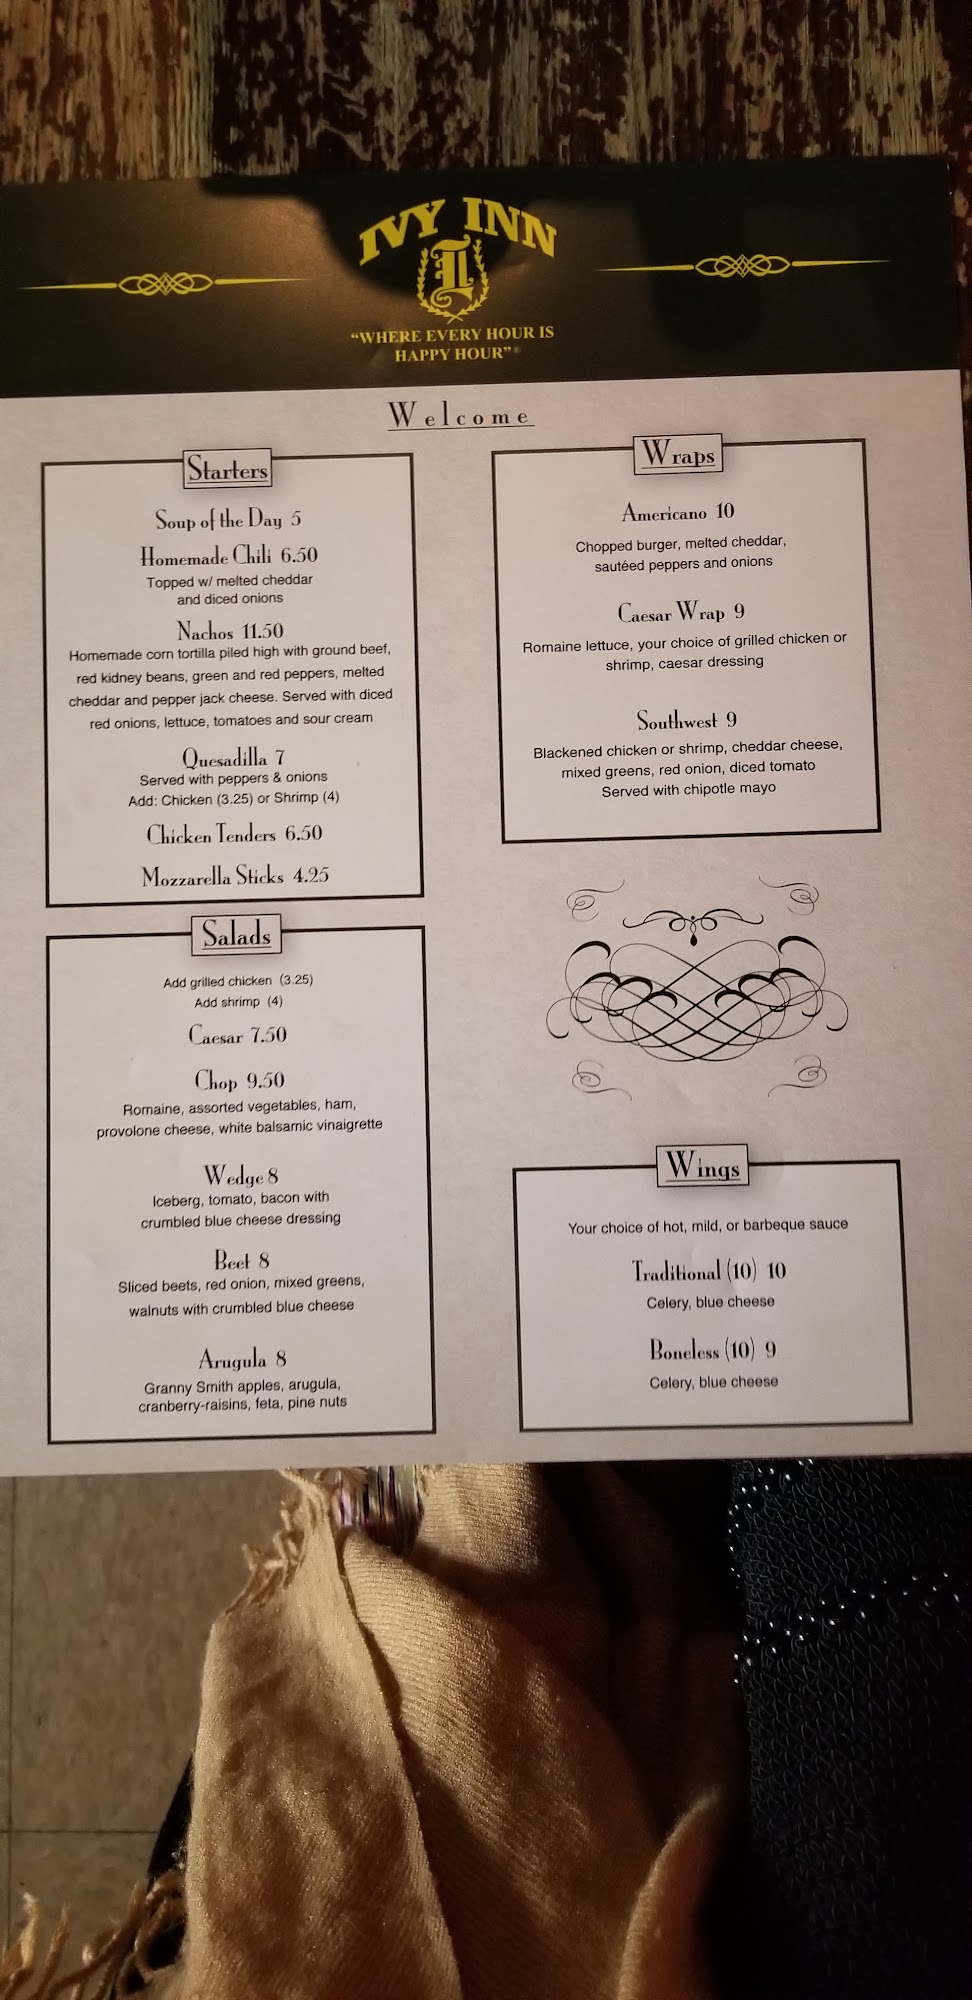 IVY INN
I
"WHERE EVERY HOUR IS
HAPPY HOUR"
Welcome
Starters
Soup of the Day 5
Homemade Chili 6.50
Topped w/ melted cheddar
and diced onions
Nachos 11.50
Homemade corn tortilla piled high with ground beef,
red kidney beans, green and red peppers, melted
cheddar and pepper jack cheese. Served with diced
red onions, lettuce, tomatoes and sour cream
Quesadilla 7
Served with peppers & onions
Add: Chicken (3.25) or Shrimp (4)
Chicken Tenders 6.50
Mozzarella Sticks 4.25
Salads
Add grilled chicken (3.25)
Add shrimp (4)
Caesar 7.50
Chop 9.50
Romaine, assorted vegetables, ham,
provolone cheese, white balsamic vinaigrette
Wedge 8
Iceberg, tomato, bacon with
crumbled blue cheese dressing
Beet 8
Sliced beets, red onion, mixed greens,
walnuts with crumbled blue cheese
Arugula 8
Granny Smith apples, arugula,
cranberry-raisins, feta, pine nuts
Wraps
Americano 10
Chopped burger, melted cheddar,
sautéed peppers and onions
Caesar Wrap 9
Romaine lettuce, your choice of grilled chicken or
shrimp, caesar dressing
Southwest 9
Blackened chicken or shrimp, cheddar cheese,
mixed greens, red onion, diced tomato
Served with chipotle mayo
Wings
Your choice of hot, mild, or barbeque sauce
Traditional (10) 10
Celery, blue cheese
Boneless (10) 9
Celery, blue cheese